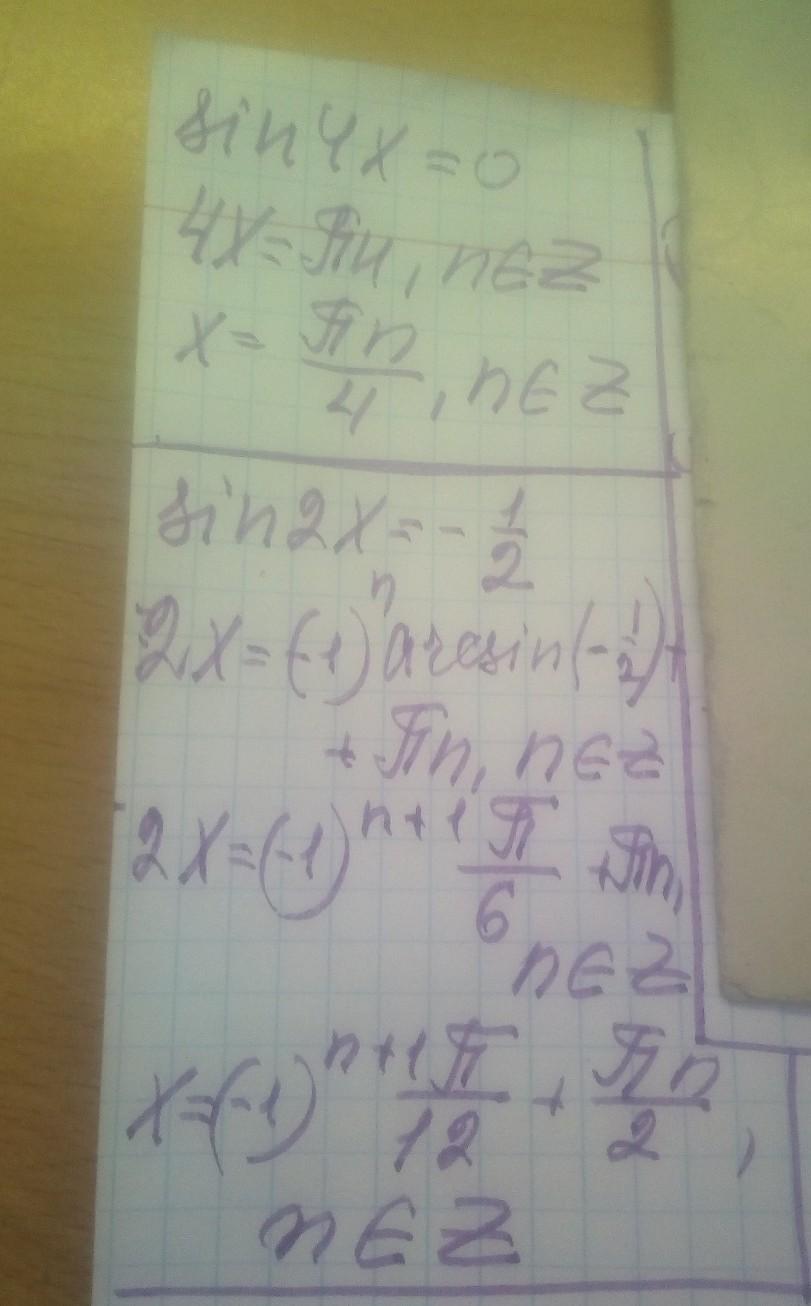 sin4x=0
4x=πn, n∈Z
x= πn/4, n∈Z
sin2x=-1/2
2x=(-1)^n arcsin(-1/2)+
+πn, n∈Z
2x=(-1)^(n+1) π/6 +πn,
n∈Z
x=(-1)^(n+1) π/12 + πn/2,
n∈Z